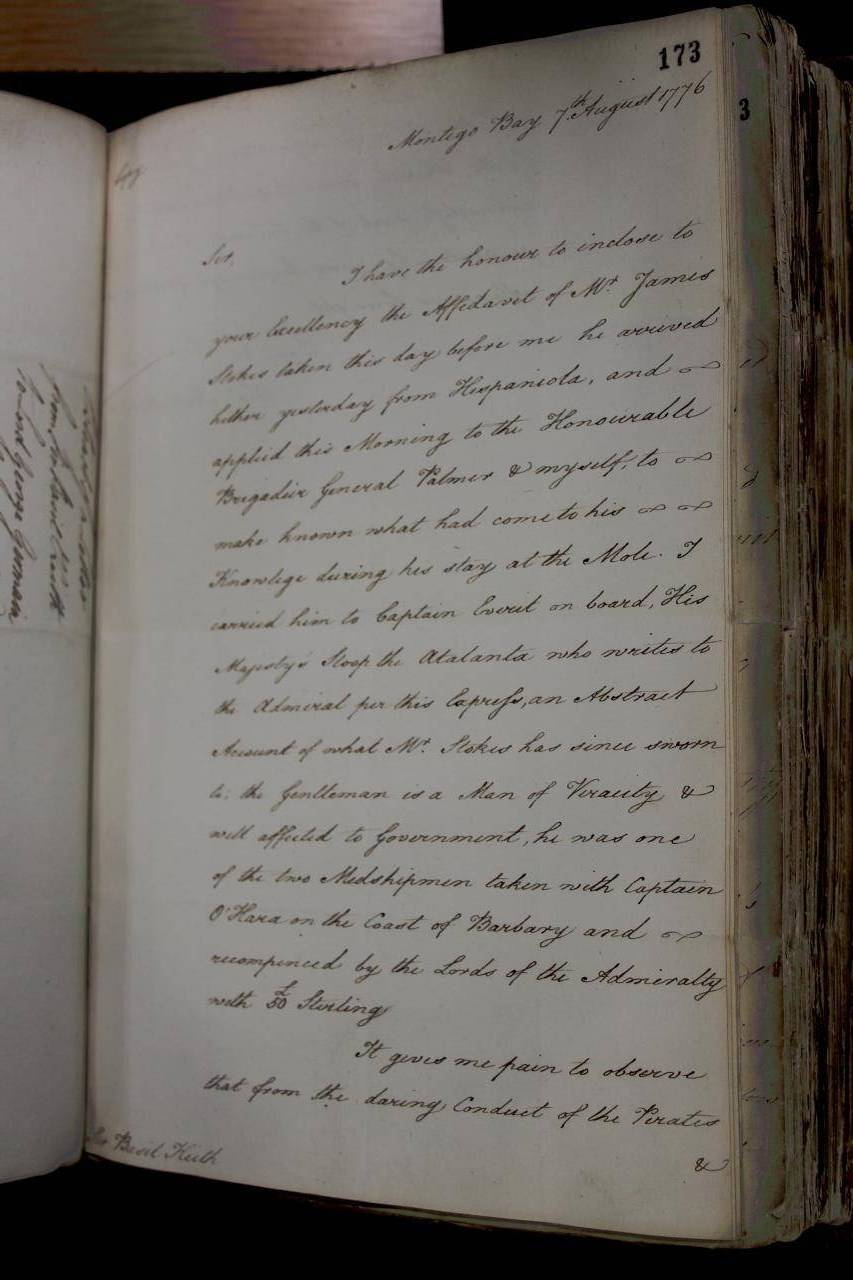 173
Montego Bay 7th. August 1776
Copy
Sir,
I have the honour to inclose to
your Excellency the Affidavit of Mr. James
Stokes taken this day before me he arrived
hither yesterday from Hispaniola, and
applied this Morning to the Honourable
Brigadier General Palmer & myself, to
make known what had come to his
Knowlege during his stay at the Mole. I
carried him to Captain Everit on board, His
Majesty's Sloop the Atalanta who writes to
the Admiral per this Express, an Abstract
Account of what Mr. Stokes has since sworn
to; the Gentleman is a Man of Veracity &
well affected to Government, he was one
of the two Midshipmen taken with Captain
O'Hara on the Coast of Barbary and
recompenced by the Lords of the Admiralty
with £50 Sterling
It gives me pain to observe
that from the daring Conduct of the Pirates
&
Sir Basil Keith
3